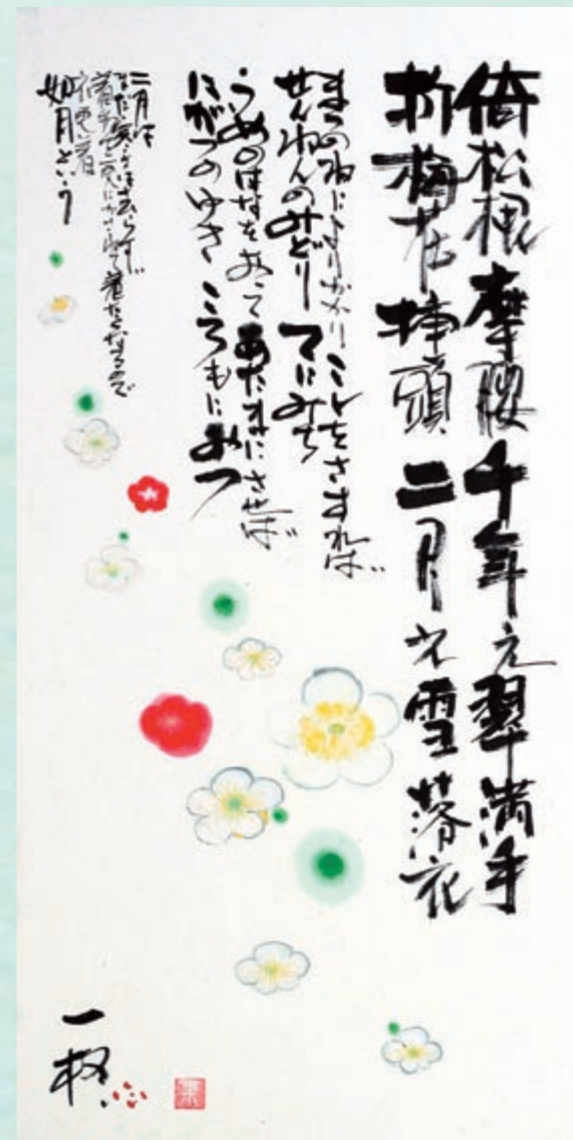 倚松根摩腰千年之翠満手
折梅花挿頭二月之雪落衣
まつのねによりかかり こしをさすれば
せんねんのみどり てにみち
うめのはなをおって あたまにさせば
にがつのゆき ころもにおつ
二月は
まだ寒さは去らず
着物を更にかさねて着たくなるので
衣更着
如月という
一